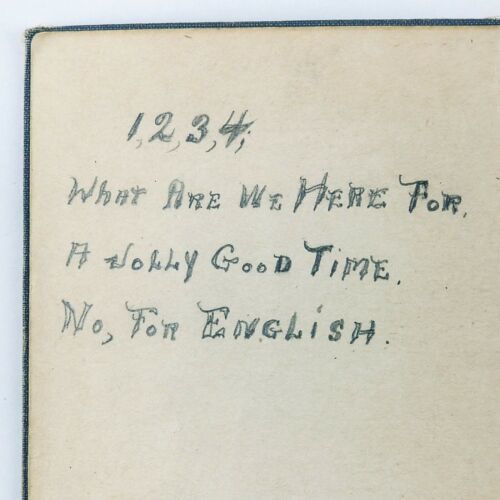 1,2,3,4;
What Are We Here For.
A Jolly Good Time.
No, For English.